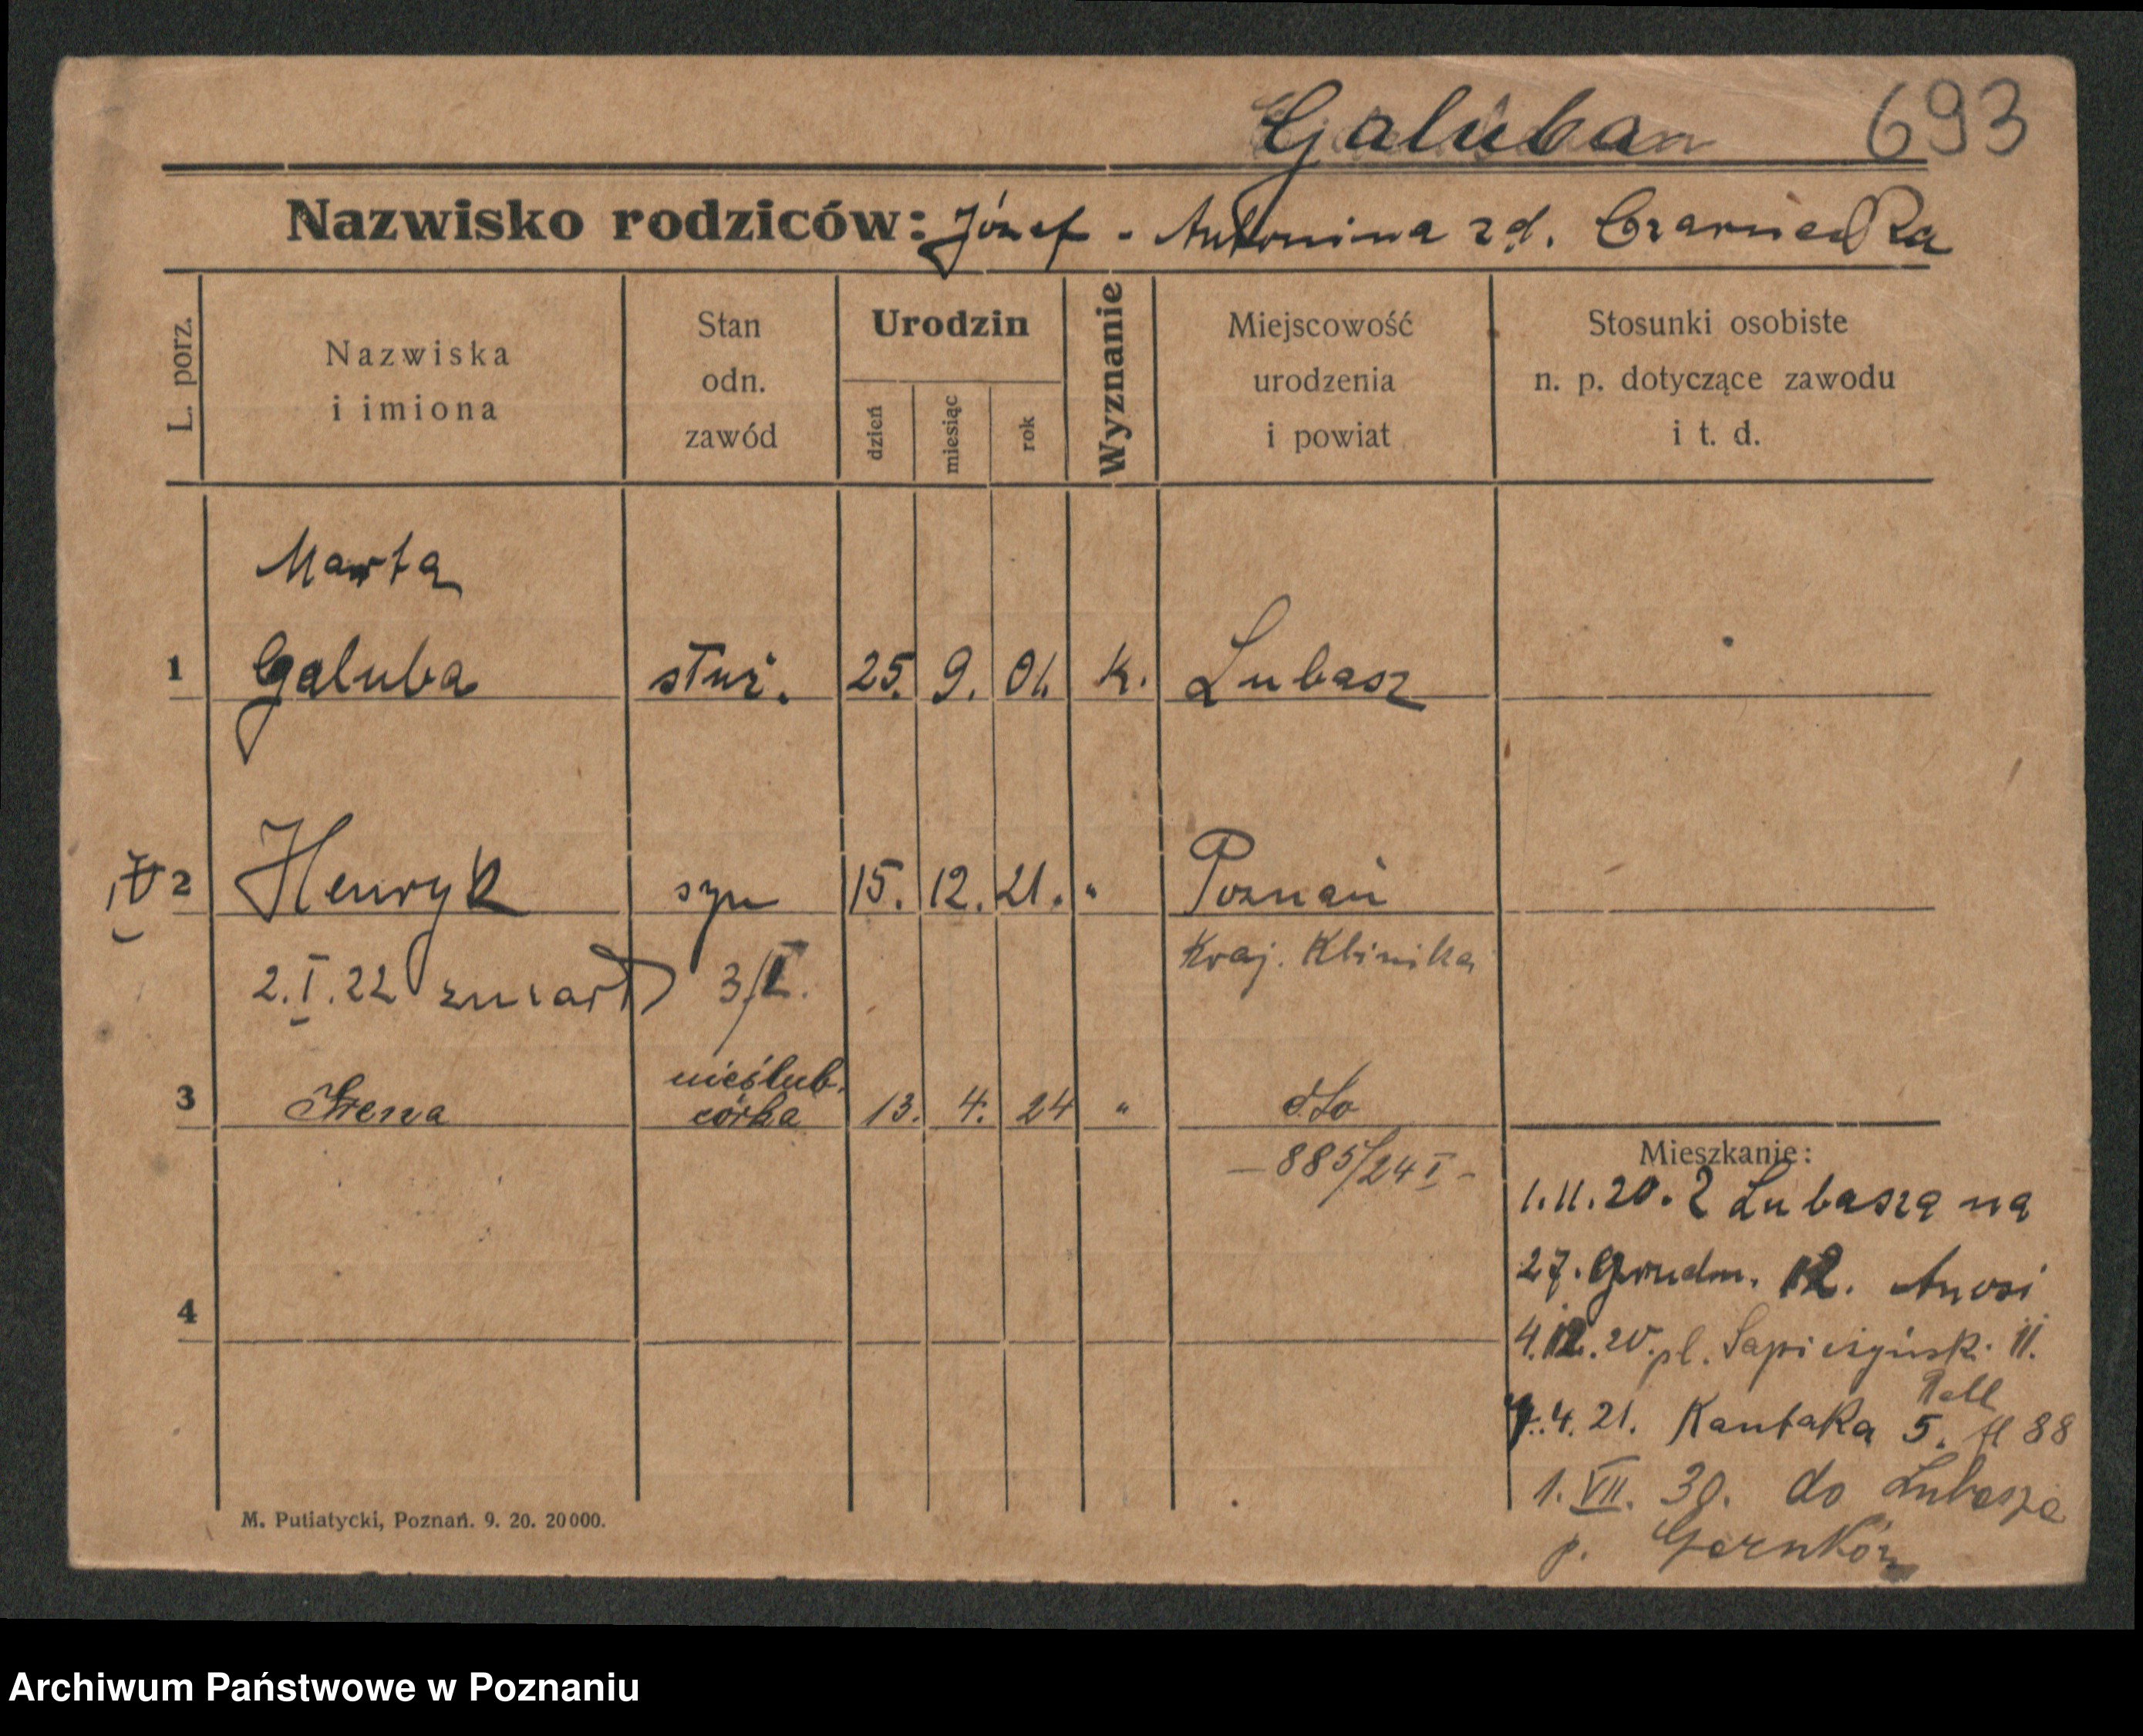 Galuba 693
Nazwisko rodziców: Józef - Antonina zd. Czarnecka
L. porz.
Nazwiska
i imiona
Stan
odn.
zawód
Urodzin
dzień
miesiąc
rok
Wyznanie
Miejscowość
urodzenia
i powiat
Stosunki osobiste
n. p. dotyczące zawodu
i t. d.
Marta
1 Galuba służ. 25. 9. 01. k. Lubasz
2 Henryk syn 15. 12. 21. " Poznań
Kraj. Klinika
2.I.22 zmarł 3/I.
nieślub.
3 Irena córka 13. 4. 24 " dto
- 885/24 I -
4
Mieszkanie:
1.11.20. z Lubasza na
27. Grudn. 12.
4.12.20. pl. Sapieżyńsk. 11.
4. 21. Kantaka 5. 88
1. VII. 30. do Lubasza
p.
M. Putiatycki, Poznań. 9. 20. 20000.
Archiwum Państwowe w Poznaniu